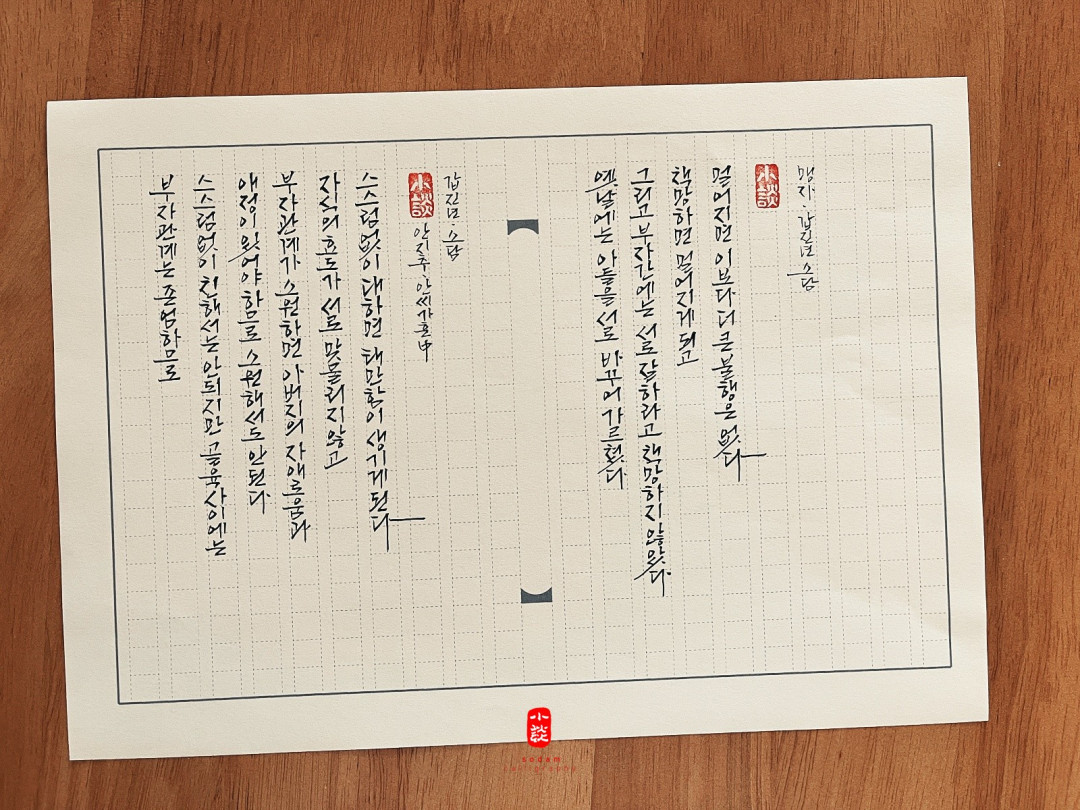 옛날에는 아들을 서로 바꾸어 가르쳤다
그리고 부자간에는 서로 잘하라고 책망하지 않았다
책망하면 멀어지게 되고
멀어지면 이보다 더 큰 불행은 없다
小談
맹자·갑진년 소담
부자관계는 존엄하므로
스스럼없이 친해서는 안되지만 골육사이에는
애정이 있어야 함므로 소원해서도 안된다
부자관계가 소원하면 아버지의 자애로움과
자식의 효도가 서로 맞물리지 않고
스스럼없이 대하면 태만함이 생기게 된다
小談
안지추·안씨가훈中
갑진년·소담
小談
sodam